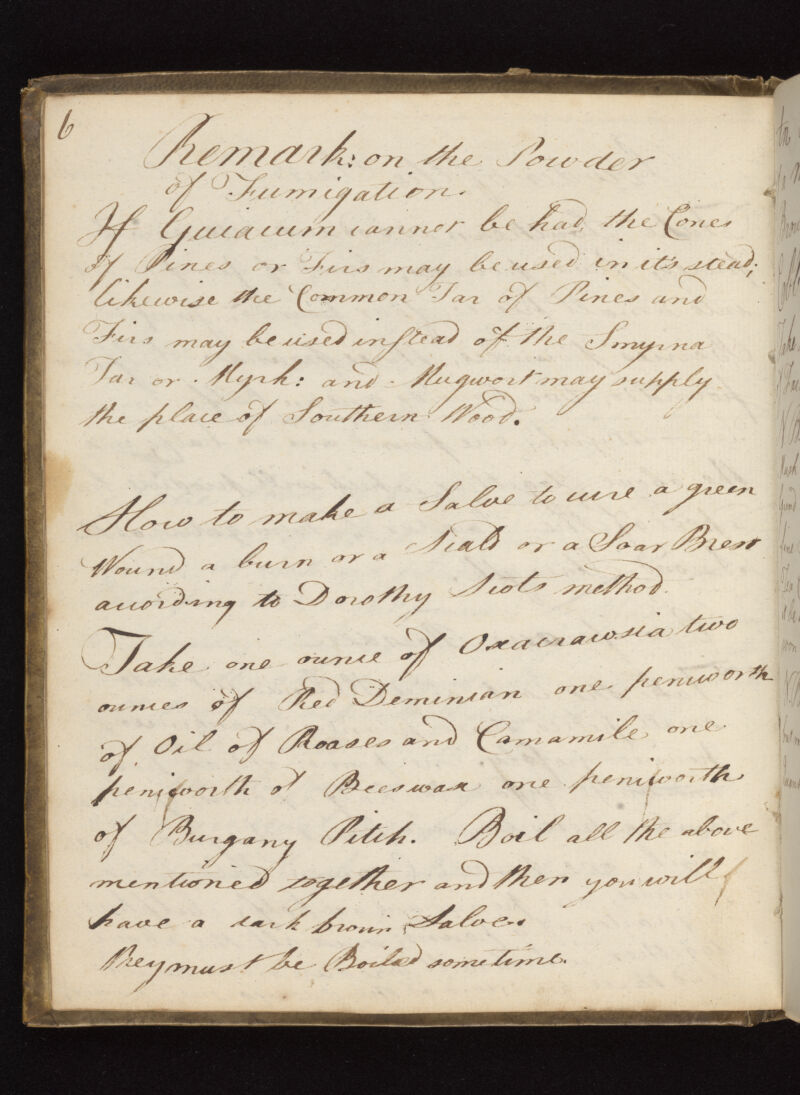 6
Remark: on the Powder
of Fumigation.
If Guiacum cannot be had, the Cones
of Pines or Firs may be used in its stead;
likewise the Common Tar of Pines and
Firs may be used instead of the Smyrna
Tar or Myrh: and Mugwort may supply
the place of Southern Wood.
How to make a Salve to cure a green
Wound a burn or a scald or a Soar Brest
according to Dorothy Scots method
Take one ounce of Oxacrawsia two
ounces of Red Deminian one peniworth
of Oil of Roases and Camamile one
peniworth of Beeswax one peniworth
of Burgany Pitch. Boil all the above
mentioned together and then you will
have a dark brown Salve.
They must be Boiled sometime.